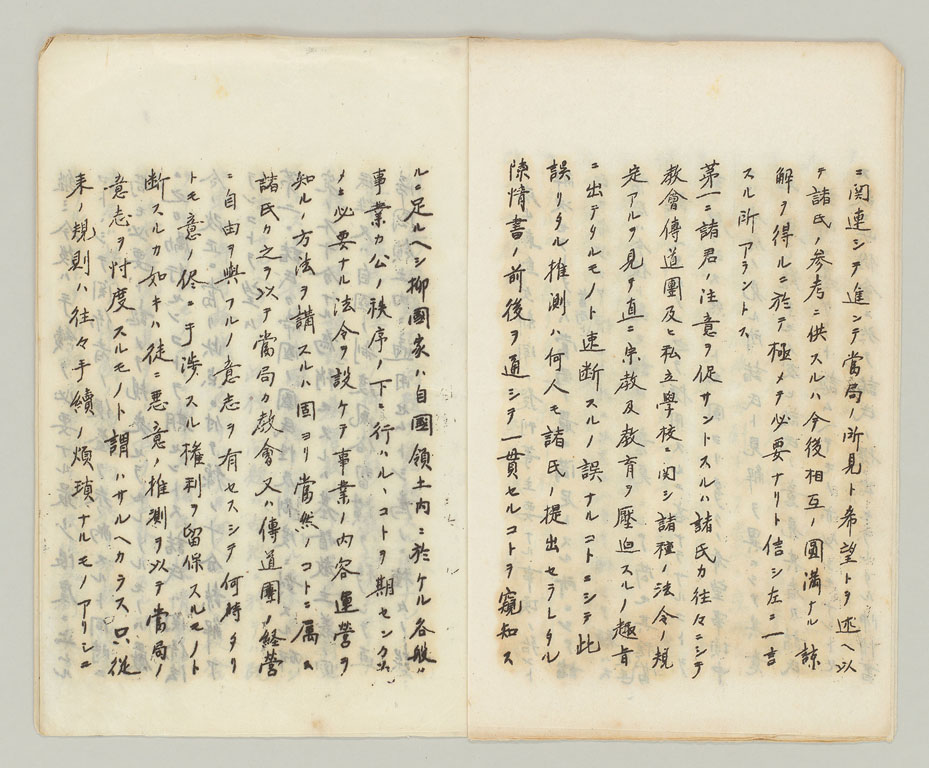 ニ関連シテ進ンテ當局ノ所見ト希望トヲ述ヘ以
テ諸氏ノ参考ニ供スルハ今後相互ノ圓満ナル諒
解ヲ得ルニ於テ極メテ必要ナリト信シ左ニ一言
スル所アラントス
第一ニ諸君ノ注意ヲ促サントスルハ諸氏カ往々ニシテ
教會傳道團及ヒ私立學校ニ関シ諸種ノ法令ノ規
定アルヲ見テ直ニ宗教及教育ヲ壓迫スルノ趣旨
ニ出テタルモノト速断スルノ誤ナルコトニシテ此
誤リタル推測ハ何人モ諸氏ノ提出セラレタル
陳情書ノ前後ヲ通シテ一貫セルコトヲ窺知ス
ルニ足ルヘシ抑國家ハ自國領土内ニ於ケル各般ノ
事業カ公ノ秩序ノ下ニ行ハルヽコトヲ期センカ為
メニ必要ナル法令ヲ設ケテ事業ノ内容運営ヲ
知ルノ方法ヲ講スルハ固ヨリ當然ノコトニ属ス
諸氏カ之ヲ以テ當局カ教會又ハ傳道團ノ経営
ニ自由ヲ與フルノ意志ヲ有セスシテ何時タリ
トモ意ノ侭ニ干渉スル権利ヲ留保スルモノト
断スルカ如キハ徒ニ悪意ノ推測ヲ以テ當局ノ
意志ヲ忖度スルモノト謂ハサルヘカラス只従
来ノ規則ハ往々手續ノ煩瑣ナルモノアリシニ